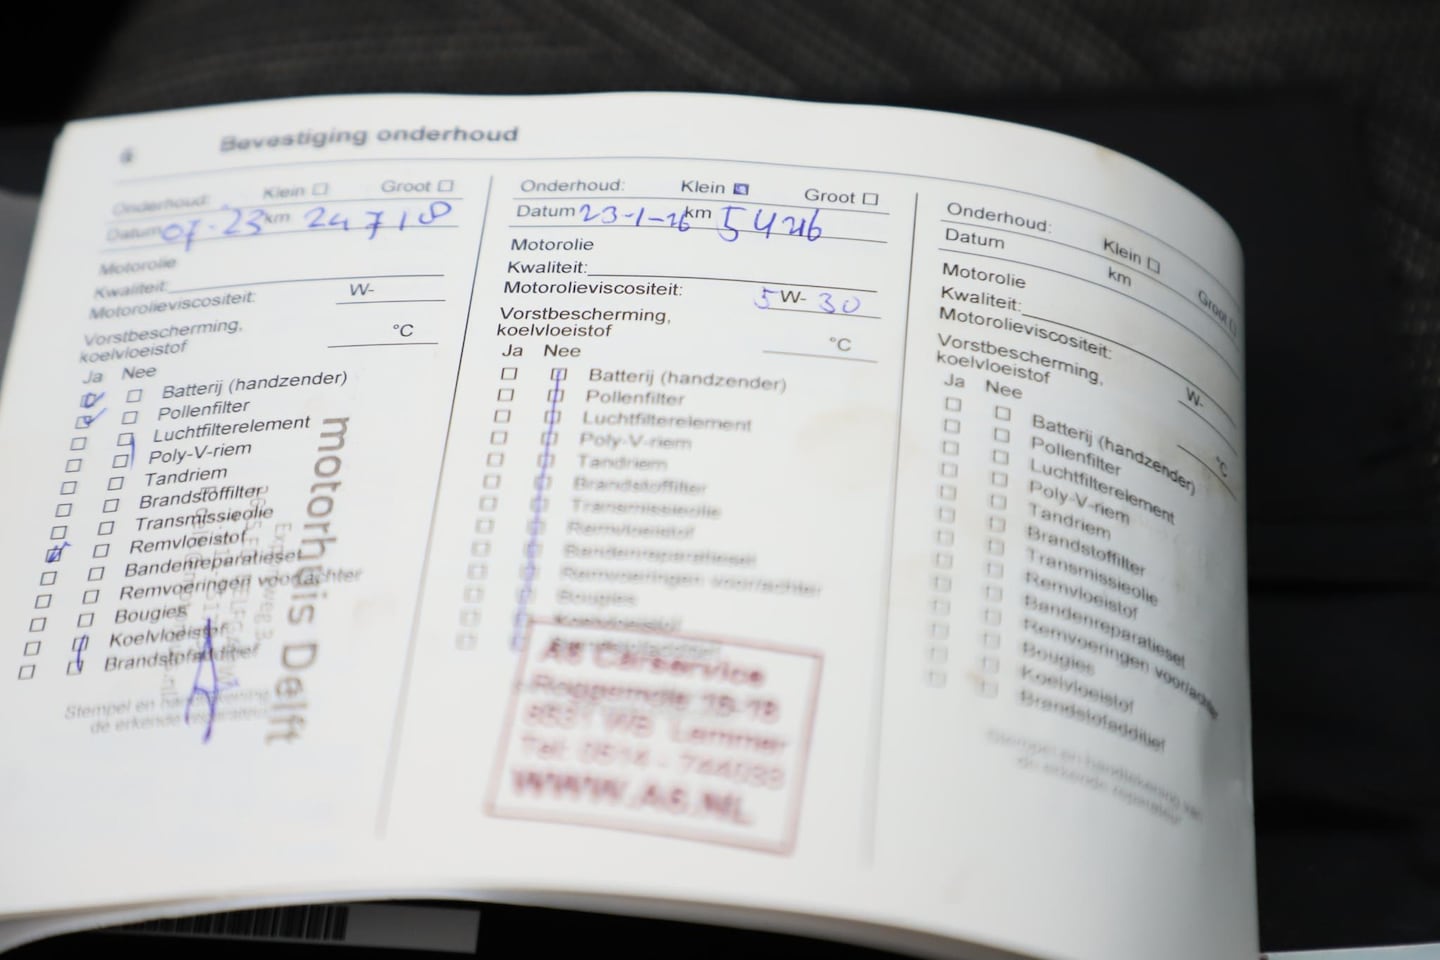 6 Bevestiging onderhoud
Onderhoud: Klein Groot
Datum 07-23 km 24718
Motorolie
Kwaliteit:
Motorolieviscositeit: W-
Vorstbescherming,
koelvloeistof °C
Ja Nee
Batterij (handzender)
Pollenfilter
Luchtfilterelement
Poly-V-riem
Tandriem
Brandstoffilter
Transmissieolie
Remvloeistof
Bandenreparatieset
Remvoeringen voor/achter
Bougies
Koelvloeistof
Brandstofadditief
Stempel en handtekening
de erkende reparateur
motorhuis Delft
Onderhoud: Klein Groot
Datum 23-1-26 km 5426
Motorolie
Kwaliteit:
Motorolieviscositeit: 5 W- 30
Vorstbescherming,
koelvloeistof °C
Ja Nee
Batterij (handzender)
Pollenfilter
Luchtfilterelement
Poly-V-riem
Tandriem
Brandstoffilter
Transmissieolie
Remvloeistof
Bandenreparatieset
Remvoeringen voor/achter
Bougies
Koelvloeistof
A6 Carservice
Roggemole 16-18
8531 WB Lemmer
Tel: 0514 -
WWW.A6.NL
Onderhoud: Klein Groot
Datum km
Motorolie
Kwaliteit:
Motorolieviscositeit: W-
Vorstbescherming,
koelvloeistof °C
Ja Nee
Batterij (handzender)
Pollenfilter
Luchtfilterelement
Poly-V-riem
Tandriem
Brandstoffilter
Transmissieolie
Remvloeistof
Bandenreparatieset
Remvoeringen voor/achter
Bougies
Koelvloeistof
Brandstofadditief
Stempel en handtekening van
de erkende reparateur